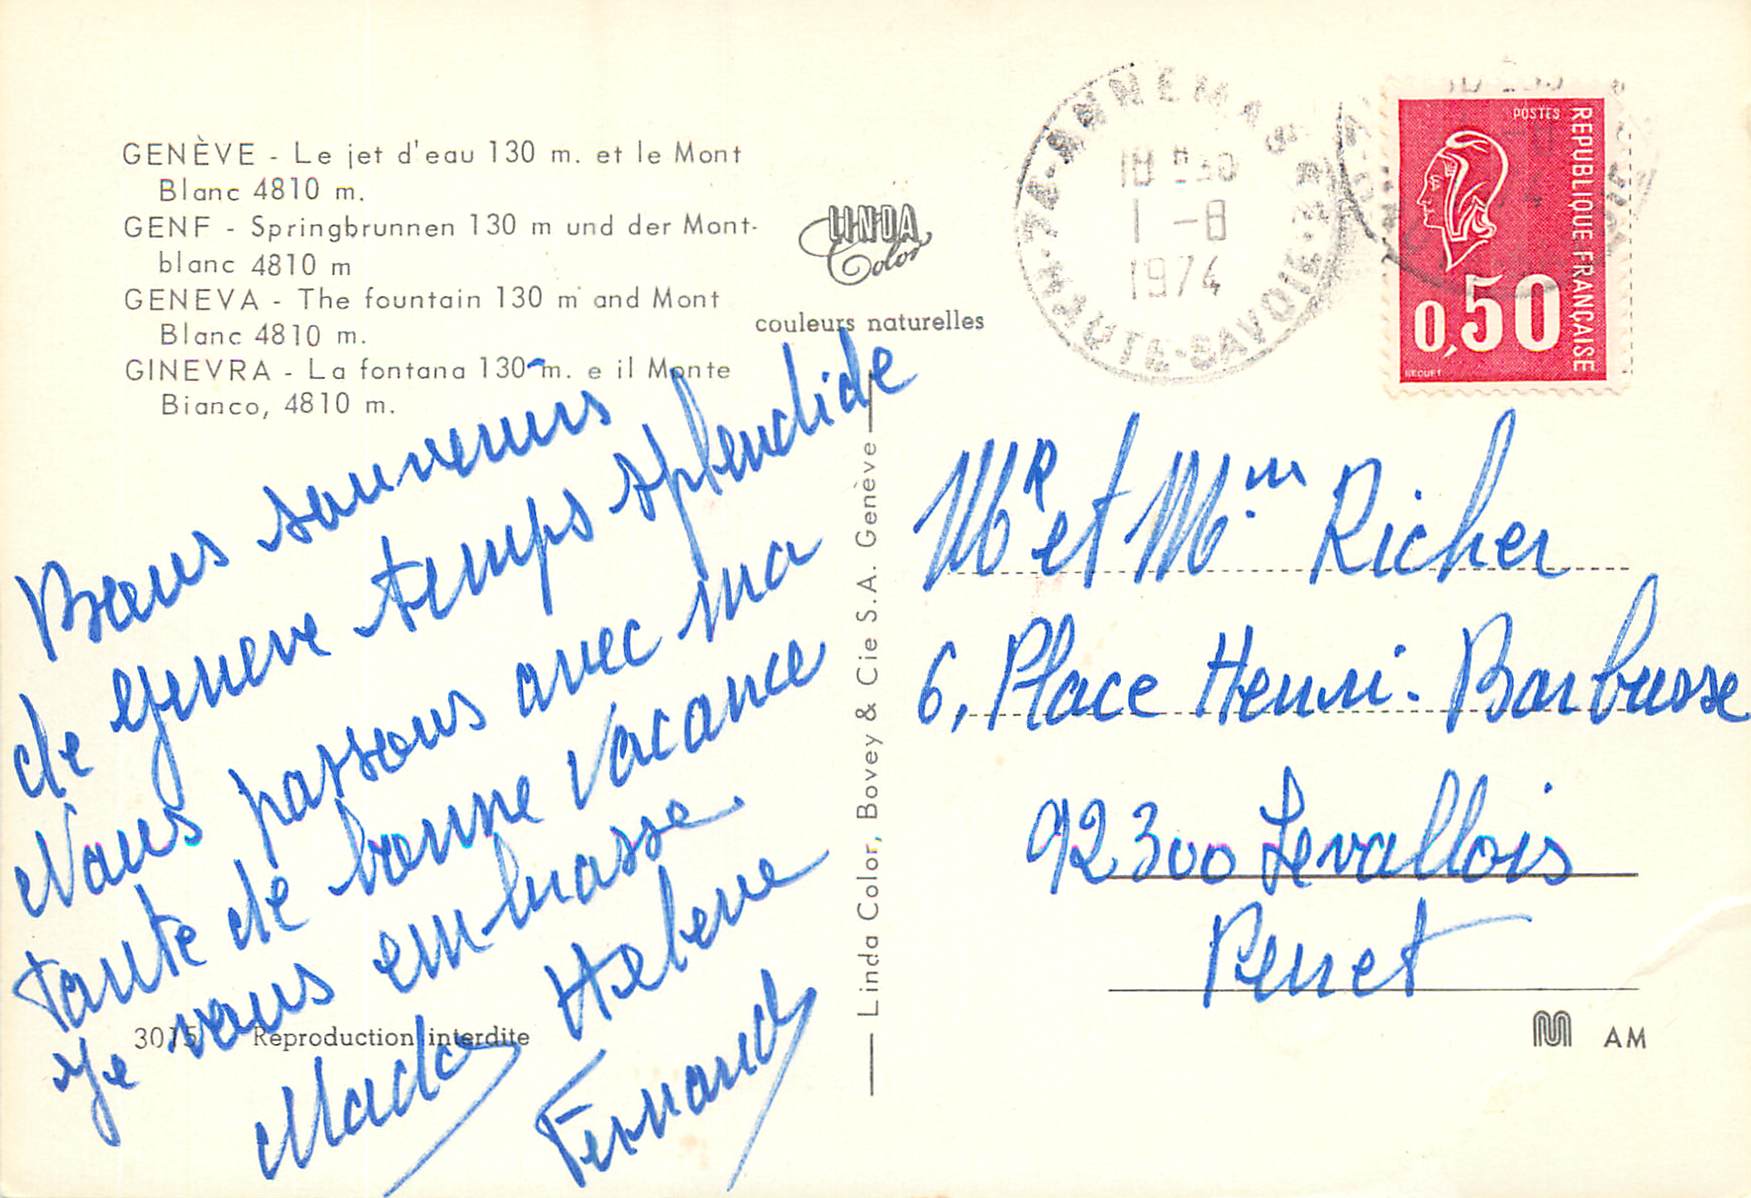 GENÈVE - Le jet d'eau 130 m. et le Mont
Blanc 4810 m.
GENF - Springbrunnen 130 m und der Mont-
blanc 4810 m
GENEVA - The fountain 130 m and Mont
Blanc 4810 m.
GINEVRA - La fontana 130 m. e il Monte
Bianco, 4810 m.
LINDA
Color
couleurs naturelles
Bons souvenirs
de Geneve temps splendide
Nous passons avec ma
tante de bonne vacance
Je vous embrasse
Mado Helene
Fernand
3015 Reproduction interdite
Linda Color, Bovey & Cie S.A. Genève
74-ANNEMASSE
18 H30
1 -8
1974
HAUTE-SAVOIE
POSTES
REPUBLIQUE FRANÇAISE
0,50
BEQUET
MR et Mm Richer
6, Place Henri-Barbusse
92300 Levallois
Perret
AM